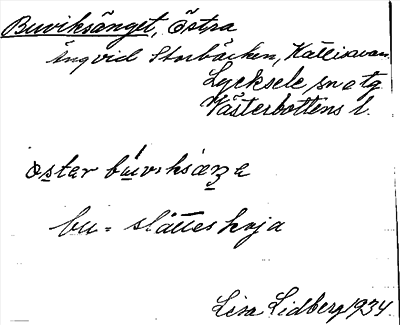 Buviksänget, Östra
Ängvid Storbäcken, Kattisavan.
Lycksele, sn o tg
Västerbottens l.
ɷstər búviksæŋə
bu = slåtteskoja
Lisa Lidberg 1934.